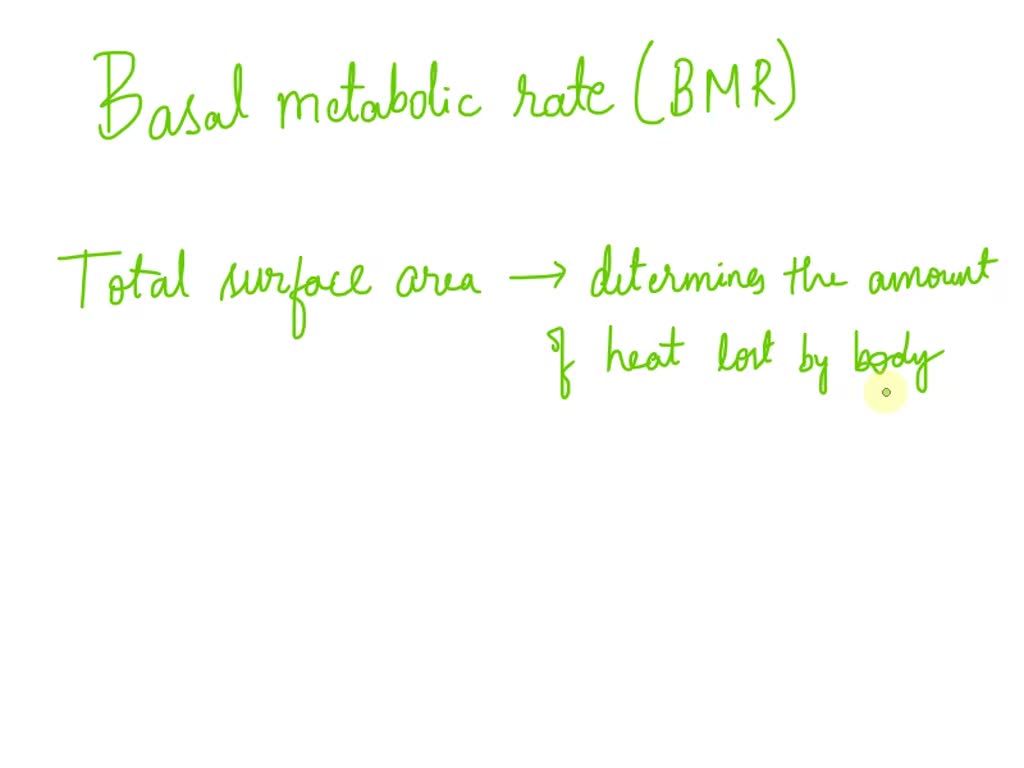 Basal metabolic rate (BMR)
Total surface area → determines the amount
of heat lost by body